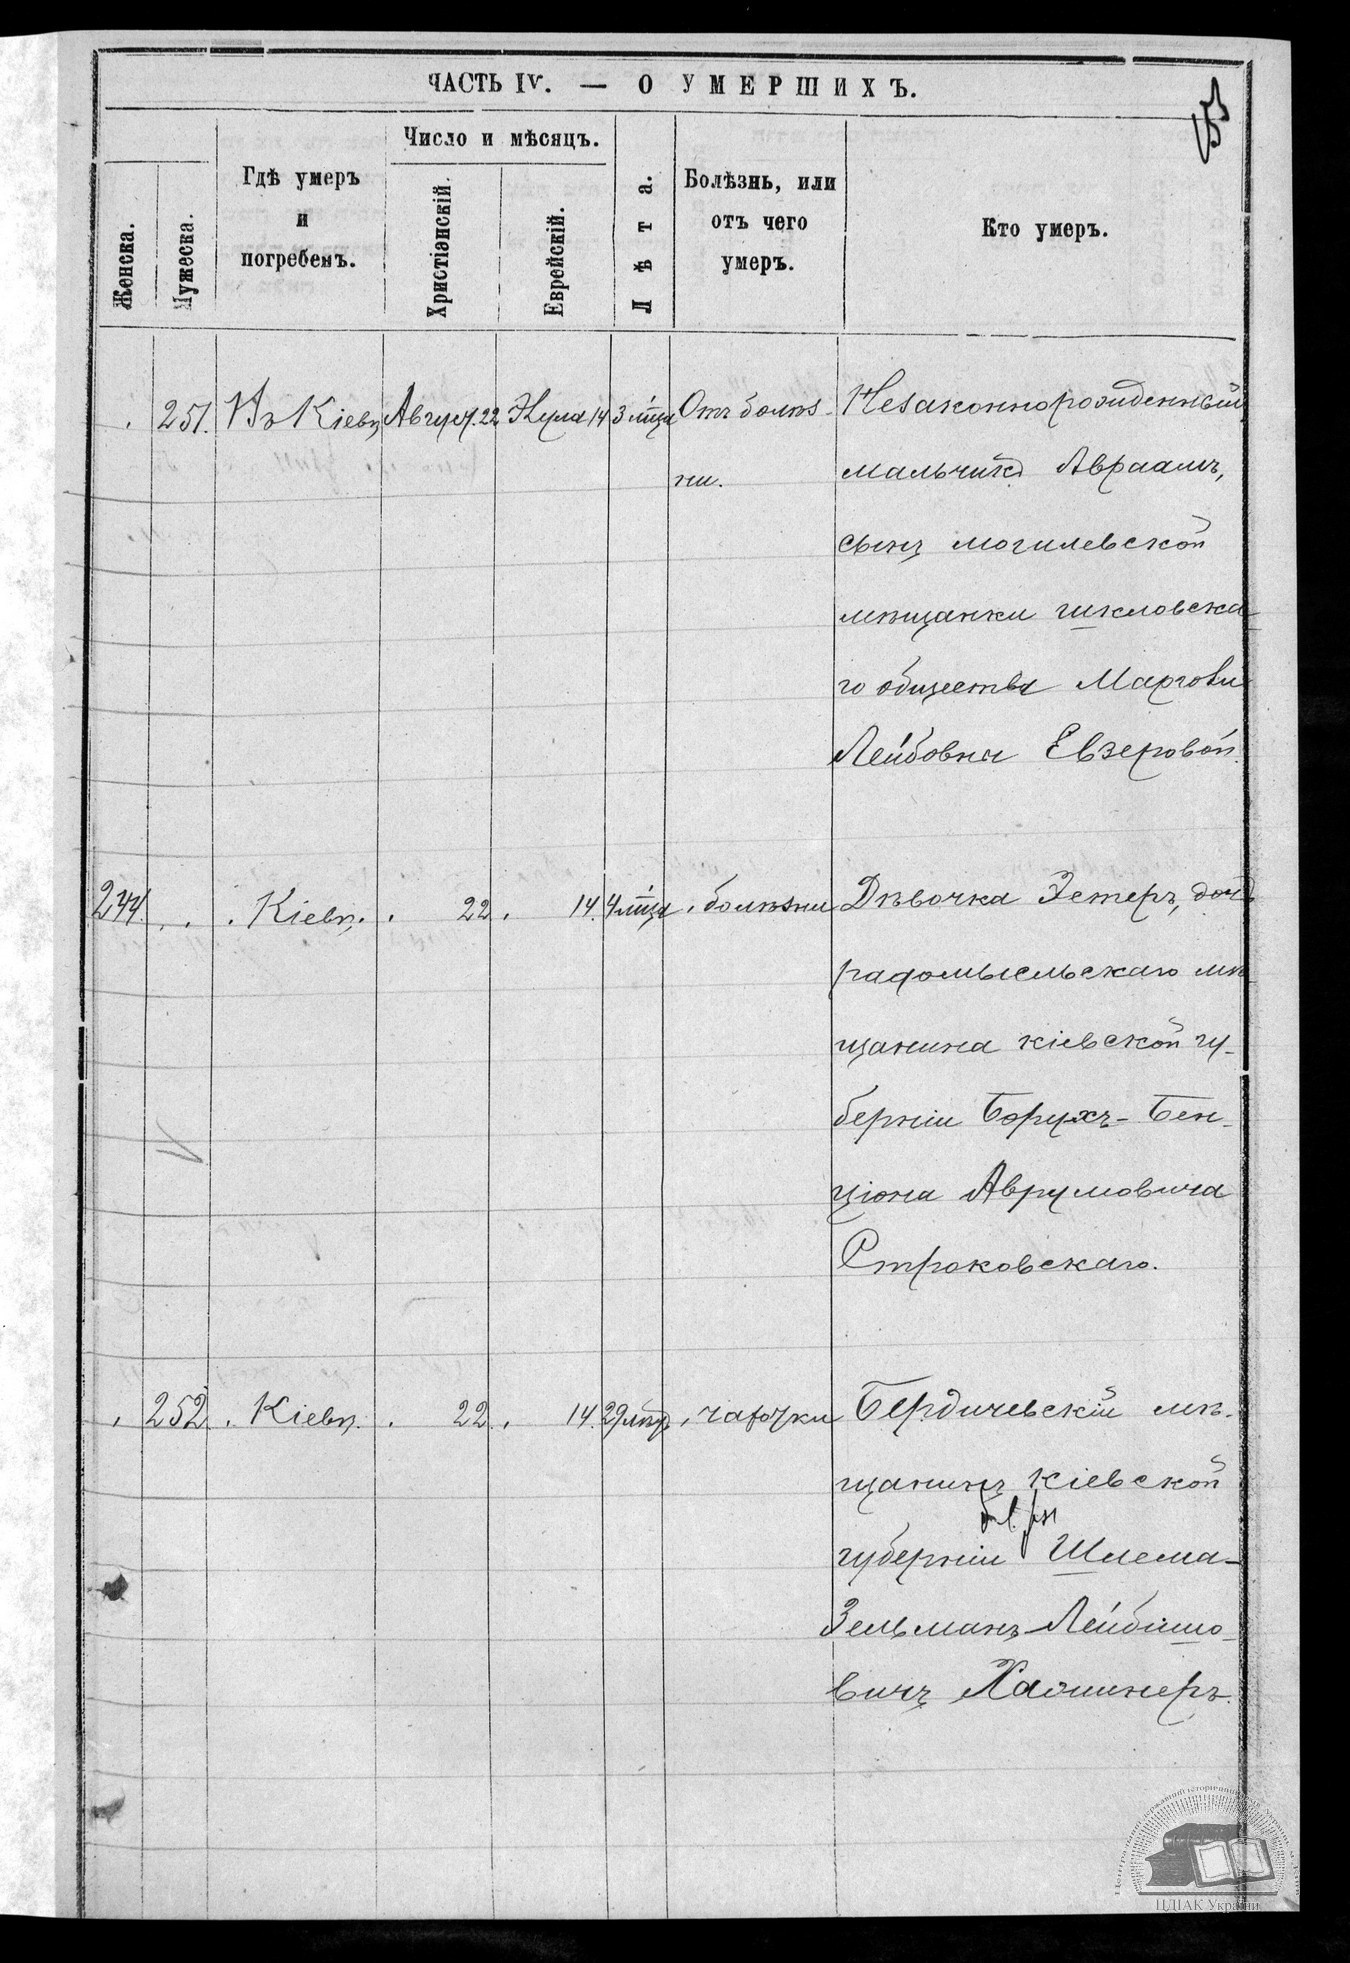 ЧАСТЬ IV. — О УМЕРШИХЪ.
Женска.
Мужеска.
Гдѣ умеръ
и
погребенъ.
Число и мѣсяцъ.
Христіэнскій.
Еврейскій.
Лѣта.
Болѣзнь, или
отъ чего
умеръ.
Кто умеръ.
251. Въ Кіевѣ Август. 22 14 3 м-ца Отъ болѣз- Незаконнорожденный
ни. мальчикъ Авраамъ,
сынъ могилевской
мѣщанки шкловска-
го общества
Лейбовны Евзеровой.
244. Кіевѣ. 22. 14. 4 м-ца болѣзни Дѣвочка Эстеръ, дочь
радомысльскаго мѣ-
щанина кіевской гу-
берніи Борухъ-Бен-
ціона Аврумовича
Строковскаго.
252. Кіевѣ. 22. 14. 29 лѣтъ чахотки Бердичевскій мѣ-
щанинъ кіевской
губерніи Шлема-
Зельманъ Лейбишо-
вичъ
ЦДІАК України